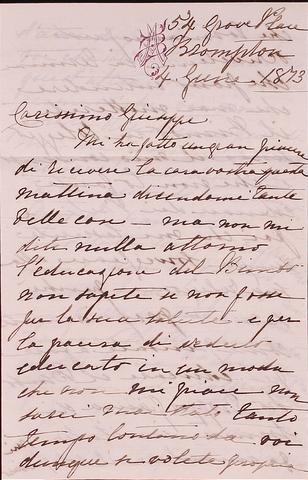 54 Grove Place
Brompton
4 Giuno 1873
Carissimo Giuseppe
Mi ha fatto un gran piacere
di ricevere la cara vostra questa
mattina dicendomi tante
belle cose — ma non mi
dite nulla attorno
l'educazione del Bimbo
non sapete se non fosse
per la sua salute e per
la paura di vederlo
educato in un modo
che non mi piace non
sarei mai stata tanto
tempo lontana da voi
dunque se volete proprio